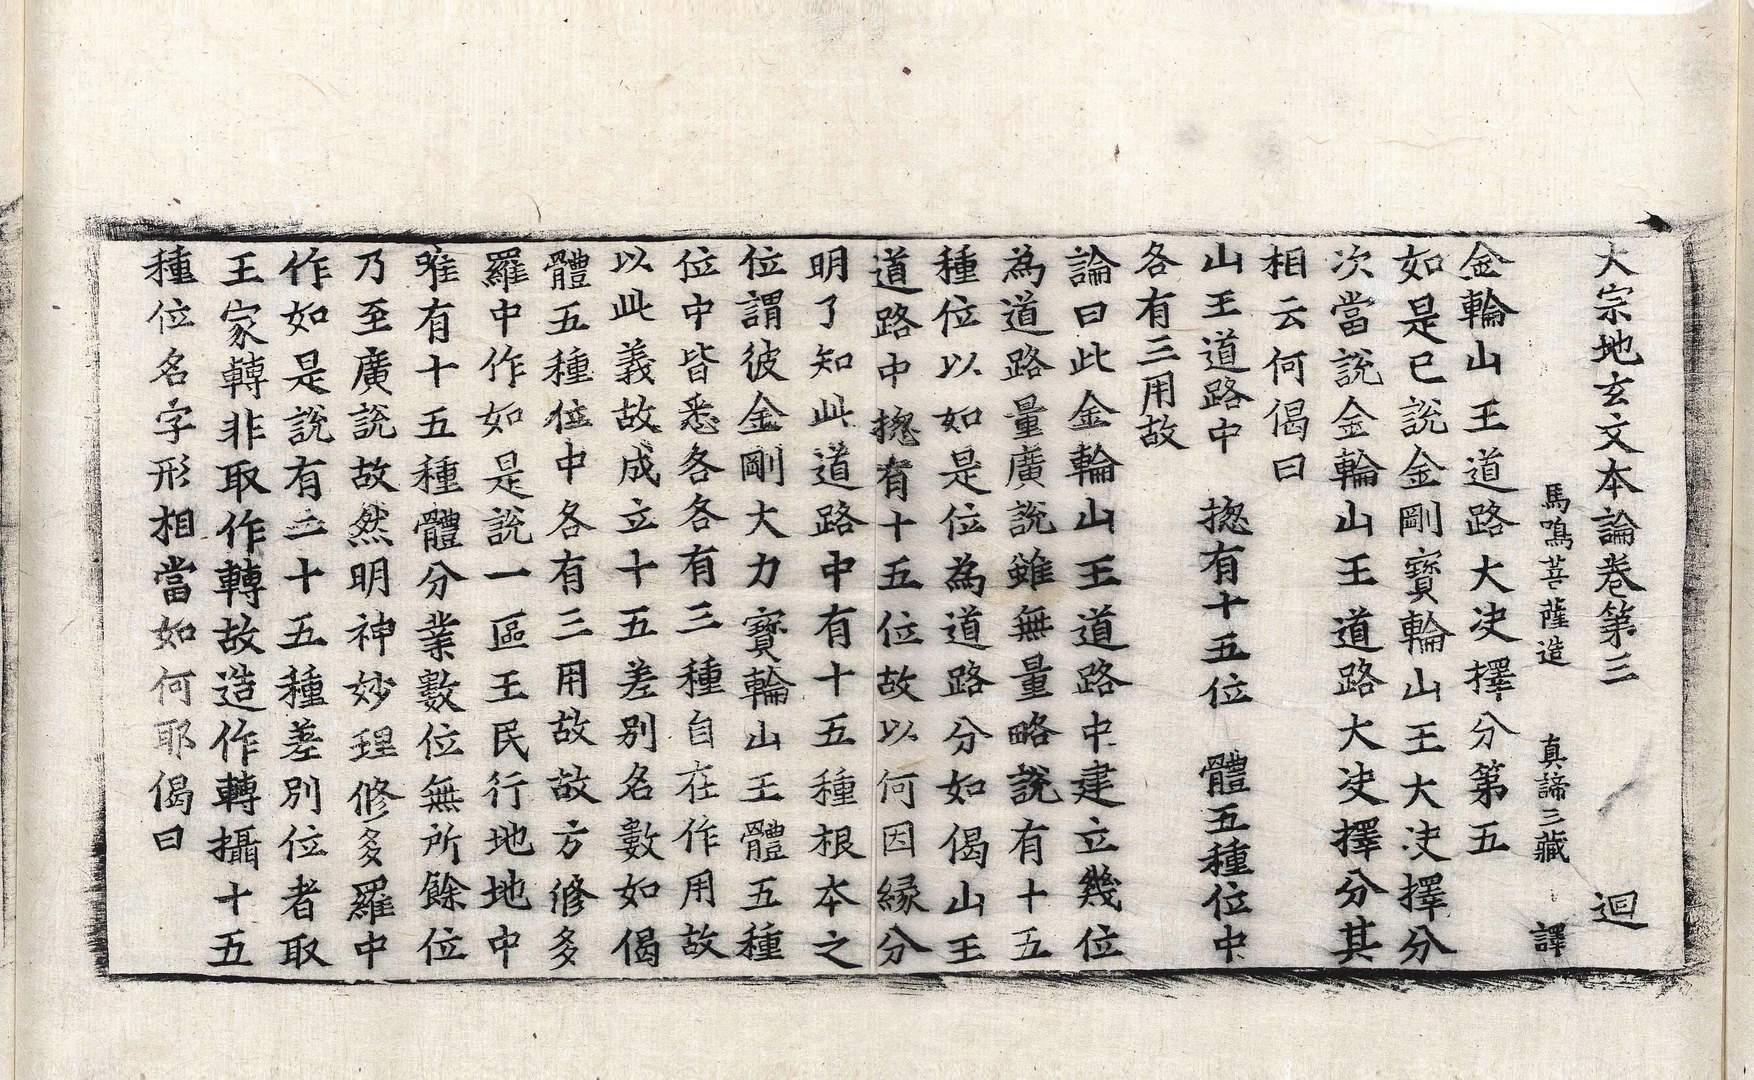 大宗地玄文本論卷第三 迴
馬鳴菩薩造 真諦三藏 譯
金輪山王道路大决擇分第五
如是已說金剛寶輪山王大决擇分
次當說金輪山王道路大决擇分其
相云何偈曰
山王道路中 揔有十五位 體五種位中
各有三用故
論曰此金輪山王道路中建立幾位
為道路量廣說雖無量略說有十五
種位以如是位為道路分如偈山王
道路中揔有十五位故以何因緣分
明了知此道路中有十五種根本之
位謂彼金剛大力寶輪山王體五種
位中皆悉各各有三種自在作用故
以此義故成立十五差別名數如偈
體五種位中各有三用故故方修多
羅中作如是說一區王民行地地中
唯有十五種體分業數位無所餘位
乃至廣說故然明神妙理修多羅中
作如是說有二十五種差別位者取
王家轉非取作轉故造作轉攝十五
種位名字形相當如何耶偈曰